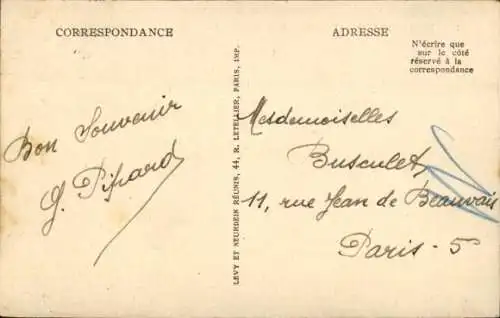 CORRESPONDANCE
ADRESSE
N'écrire que
sur le côté
réservé à la
correspondance
Bon Souvenir
G. Pipard
LEVY ET NEURDEIN RÉUNIS, 44, R. LETELLIER, PARIS, IMP.
Mesdemoiselles
Busculet,
11, rue Jean de Beauvais
Paris - 5